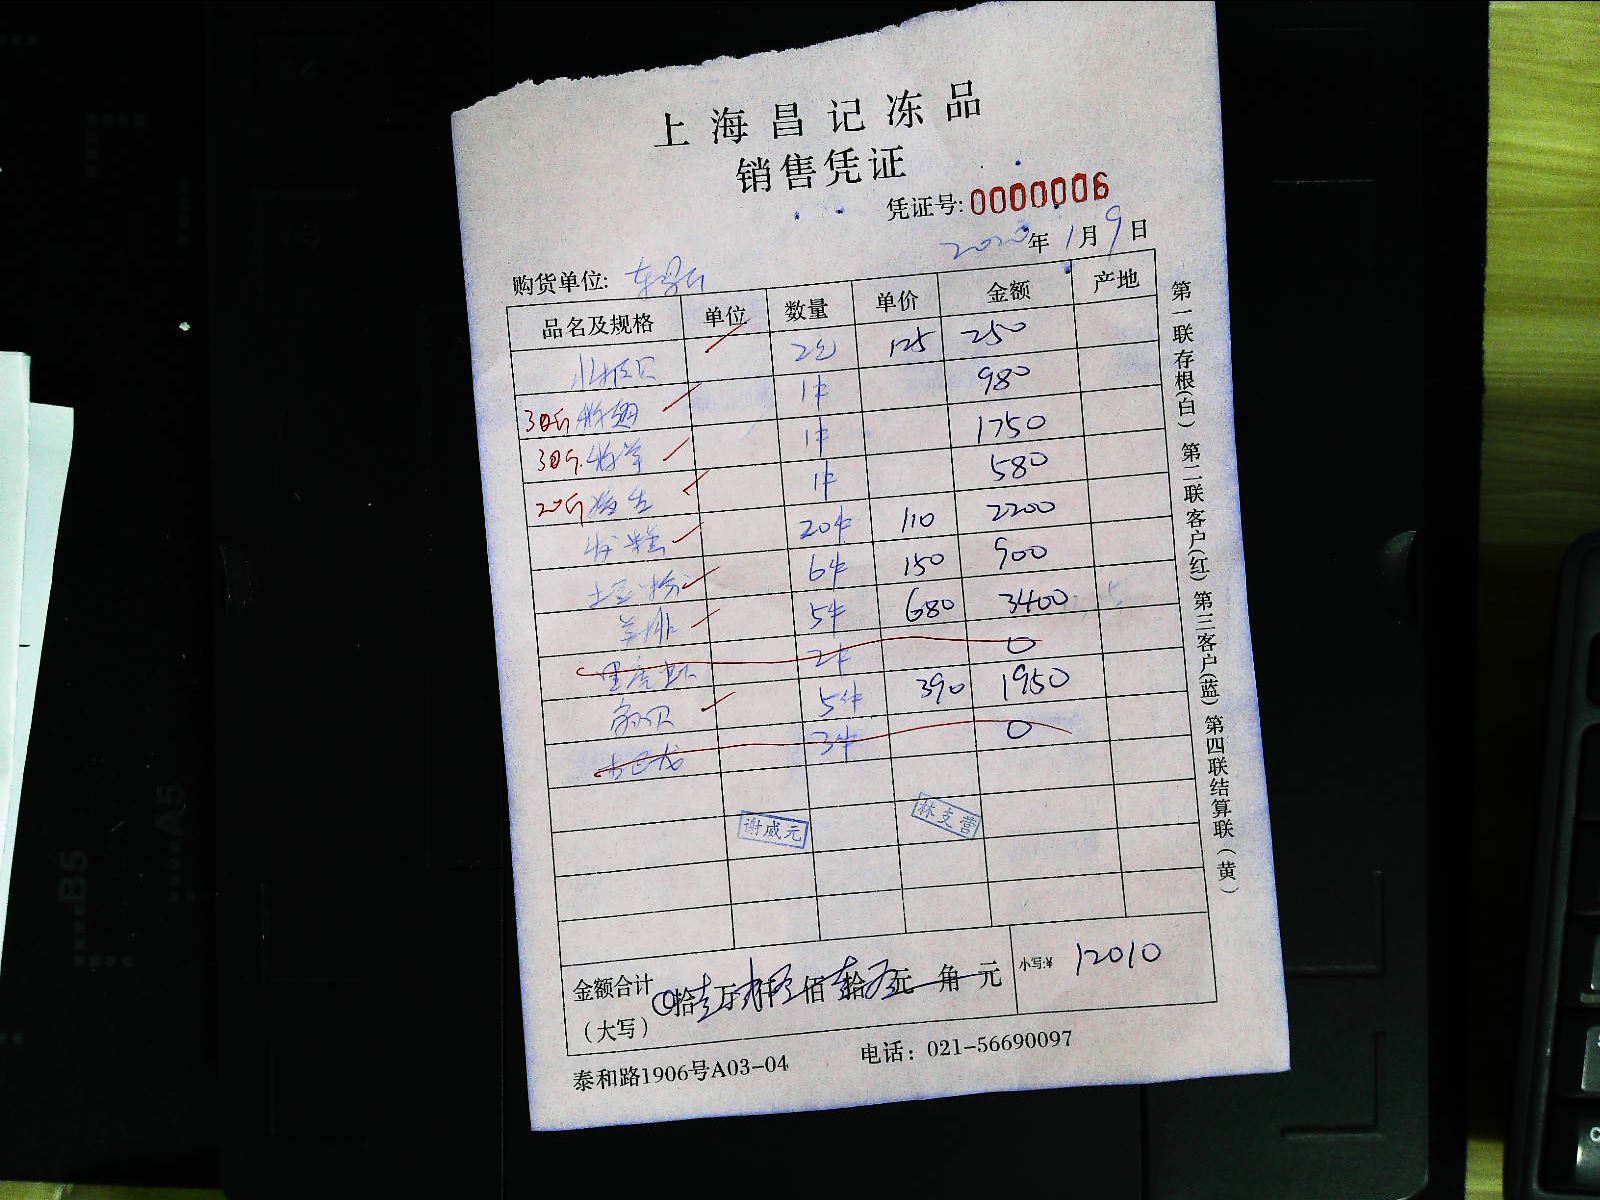 上海昌记冻品
销售凭证
凭证号:0000006
2020年1月9日
购货单位:
品名及规格 单位 数量 单价 金额 产地
2包 125 250
30斤 1件 980
30斤 1件 1750
20斤 1件 580
发糕 20件 110 2200
土豆粉 6件 150 900
羊排 5件 680 3400
黑虎虾 2件 0
扇贝 5件 390 1950
3件 0
谢威元 林支营
金额合计 拾壹万贰仟零佰壹拾零元角元 小写:¥ 12010
(大写)
泰和路1906号A03-04 电话: 021-56690097
第一联存根(白) 第二联客户(红) 第三客户(蓝) 第四联结算联(黄)
B5
A5